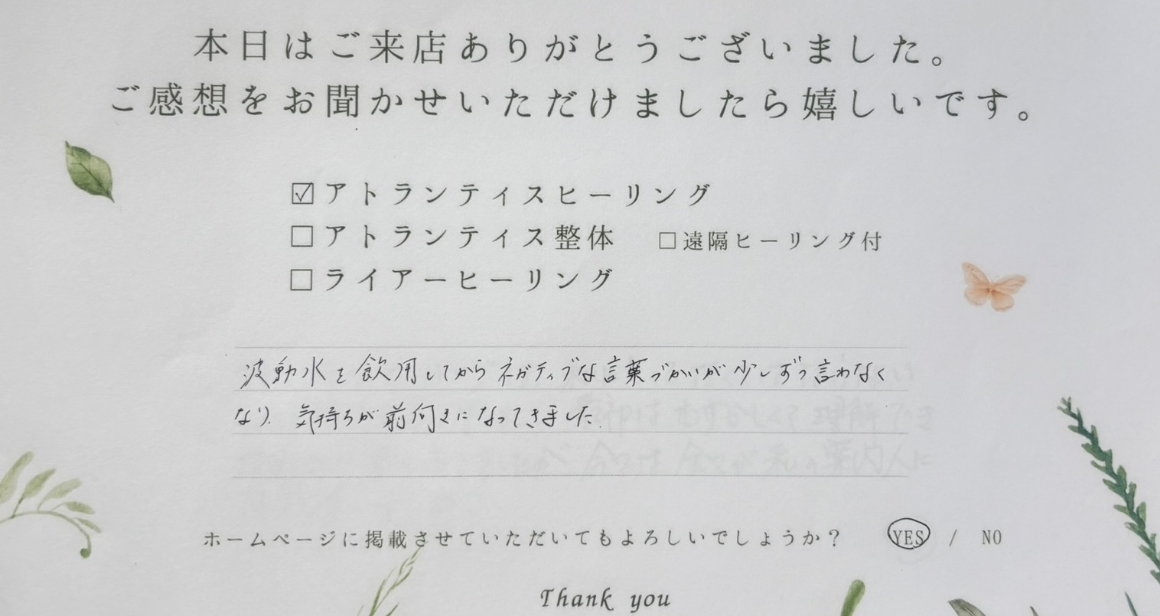 本日はご来店ありがとうございました。
ご感想をお聞かせいただけましたら嬉しいです。
☑アトランティスヒーリング
□アトランティス整体 □遠隔ヒーリング付
□ライアーヒーリング
波動水を飲用してからネガティブな言葉づかいが少しずつ言わなく
なり、気持ちが前向きになってきました。
ホームページに掲載させていただいてもよろしいでしょうか? YES / NO
Thank you